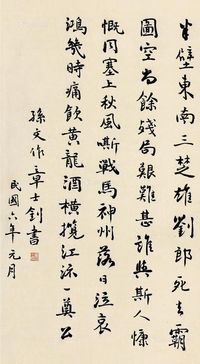 半壁東南三楚雄劉郎死去霸
圖空尚餘殘局艱難甚誰與斯人慷
慨同塞上秋風嘶戰馬神州落日泣哀
鴻幾時痛飲黃龍酒橫攬江流一奠公
孫文作章士釗書
民國六年元月